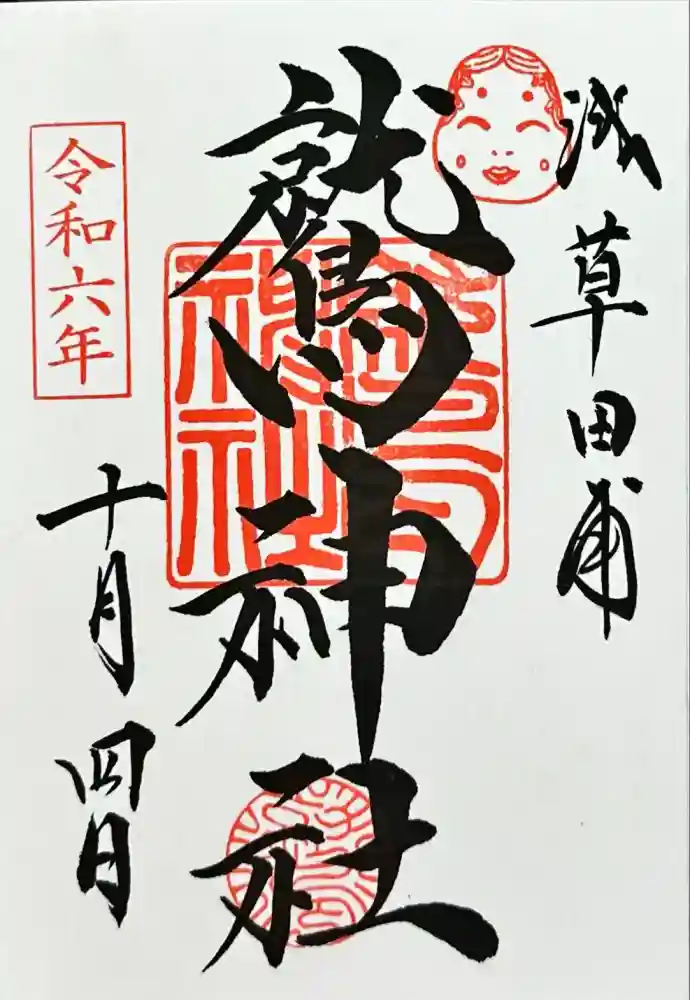 浅草田甫
鷲神社
令和六年
十月四日